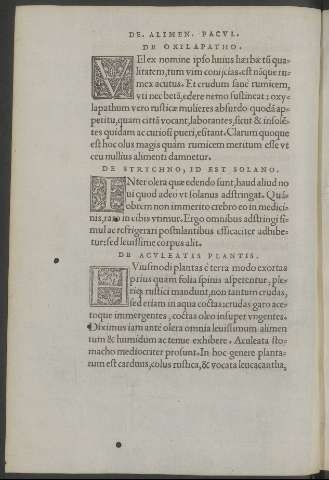 DE ALIMEN. FACVL.
DE OXILAPATHO.
VEl ex nomine ipso huius hærbæ tũ qua-
litatem, tum vim conijcias. est nãque ru-
mex acutus. Et crudum sanè rumicem,
vti nec betã, edere nemo sustineat: oxy-
lapathum vero rusticæ mulieres absurdo quodã ap-
petitu, quam cittã vocant, laborantes, sicut & insolẽ-
tes quidam ac curiosi pueri, esitant. Clarum quoque
est hoc olus magis quàm rumicem meritum esse vt
ceu nullius alimenti damnetur.
DE STRYCHNO, ID EST SOLANO.
INter olera quæ edendo sunt, haud aliud no
ui quod adeo vt solanus adstringat. Quã-
obrem non immerito crebro eo in medici-
nis, raro in cibis vtimur. Ergo omnibus adstringi si-
mul ac refrigerari postulantibus efficaciter adhibe-
tur: sed leuissime corpus alit.
DE ACVLEATIS PLANTIS.
HViusmodi plantas è terra modo exortas
prius quàm folia spinis asperentur, ple-
riq; rustici mandunt, non tantum crudas,
sed etiam in aqua coctas: crudas garo ace-
toque immergentes, coctas oleo insuper vngentes.
Diximus iam antè olera omnia leuissimum alimen
tum & humidum ac tenue exhibere. Aculeata sto-
macho mediocriter prosunt. In hoc genere planta-
rum est carduus, colus rustica, & vocata leucacantha,